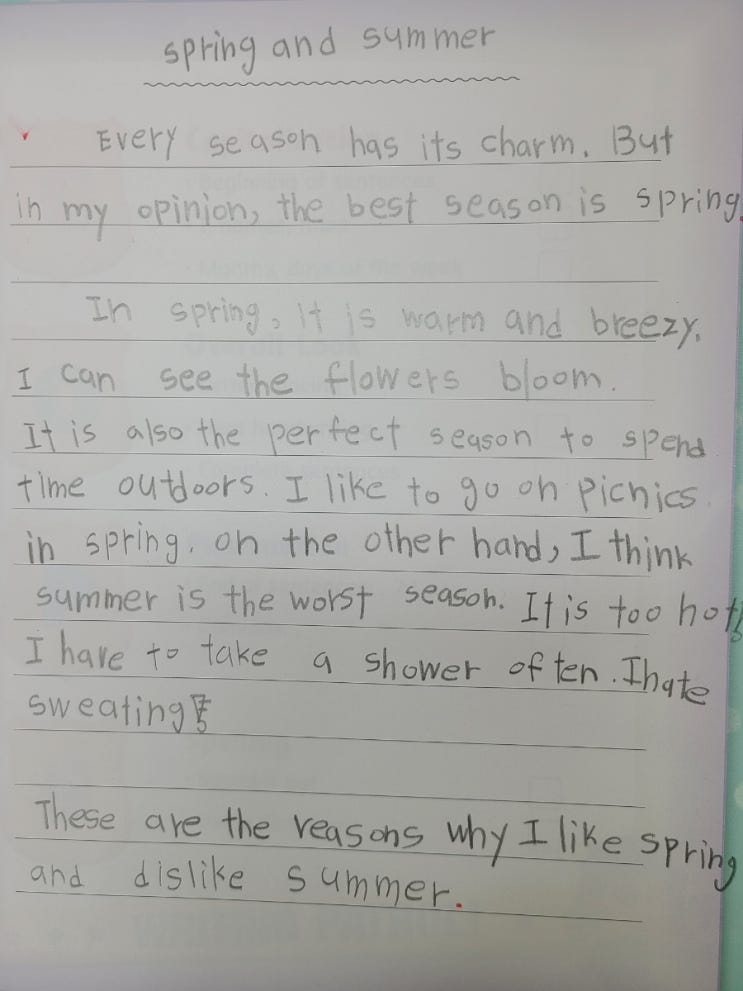 spring and summer
Every season has its charm. But
in my opinion, the best season is spring.
In spring, it is warm and breezy.
I can see the flowers bloom.
It is also the perfect season to spend
time outdoors. I like to go on picnics
in spring. on the other hand, I think
summer is the worst season. It is too hot!
I have to take a shower often. I hate
sweating!
These are the reasons why I like spring
and dislike summer.